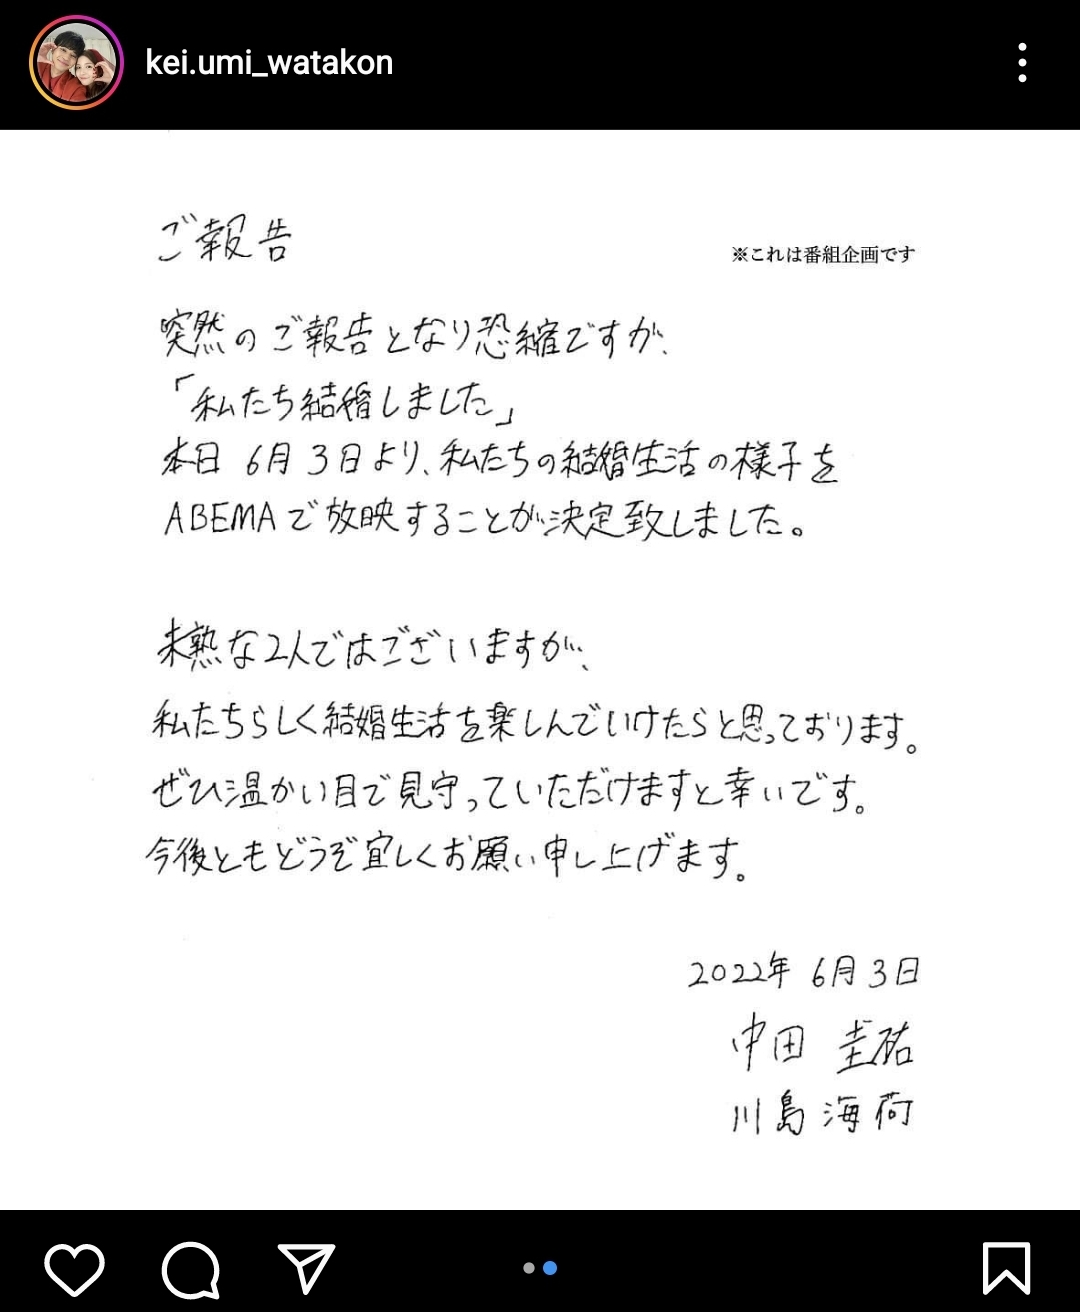 kei.umi_watakon
ご報告
※これは番組企画です
突然のご報告となり恐縮ですが、
「私たち結婚しました」
本日 6月3日より、私たちの結婚生活の様子を
ABEMAで放映することが決定致しました。
未熟な2人ではございますが、
私たちらしく結婚生活を楽しんでいけたらと思っております。
ぜひ温かい目で見守っていただけますと幸いです。
今後ともどうぞ宜しくお願い申し上げます。
2022年 6月3日
中田 圭祐
川島 海荷